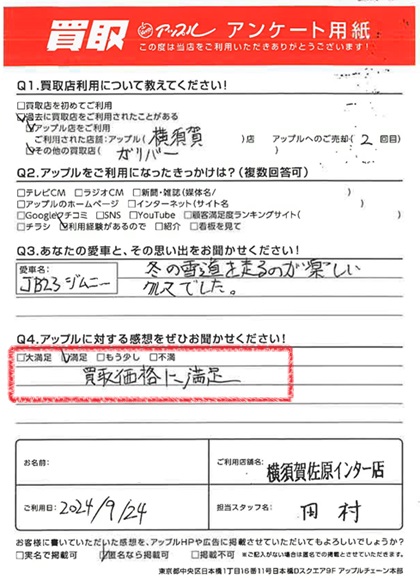 買取 アップル アンケート用紙
この度は当店をご利用いただきありがとうございます!
Q1.買取店利用について教えてください!
□買取店を初めてご利用
☑過去に買取店をご利用されたことがある
☑アップル店をご利用
ご利用された店舗:アップル( 横須賀 )店 アップルへのご売却( 2 回目)
☑その他の買取店( ガリバー )
Q2.アップルをご利用になったきっかけは?(複数回答可)
□テレビCM □ラジオCM □新聞・雑誌(媒体名/ )
□アップルのホームページ □インターネット(サイト名 )
□Googleクチコミ □SNS □YouTube □顧客満足度ランキングサイト( )
□チラシ ☑利用経験があるので □紹介 □看板を見て
Q3.あなたの愛車と、その思い出をお聞かせください!
愛車名:
JB23ジムニー
冬の雪道を走るのが楽しい
クルマでした。
Q4.アップルに対する感想をぜひお聞かせください!
□大満足 ☑満足 □もう少し □不満
買取価格に満足
お名前:
ご利用店舗名:
横須賀佐原インター店
ご利用日: 2024/9/24
担当スタッフ名: 田村
お客様に書いていただいた感想を、アップルHPや広告に掲載させていただいてもよろしいでしょうか?
□実名で掲載可 ☑匿名なら掲載可 □掲載不可 ※ご記入がない場合は匿名での掲載とさせていただきます。
東京都中央区日本橋1丁目16番11号日本橋Dスクエア9F アップルチェーン本部